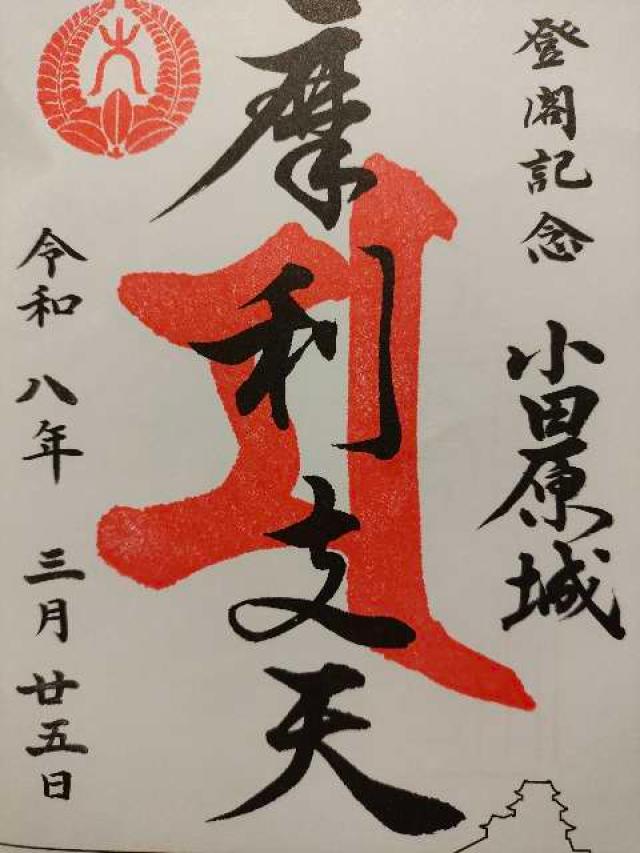 登閣記念
小田原城
摩利支天
令和八年三月廿五日